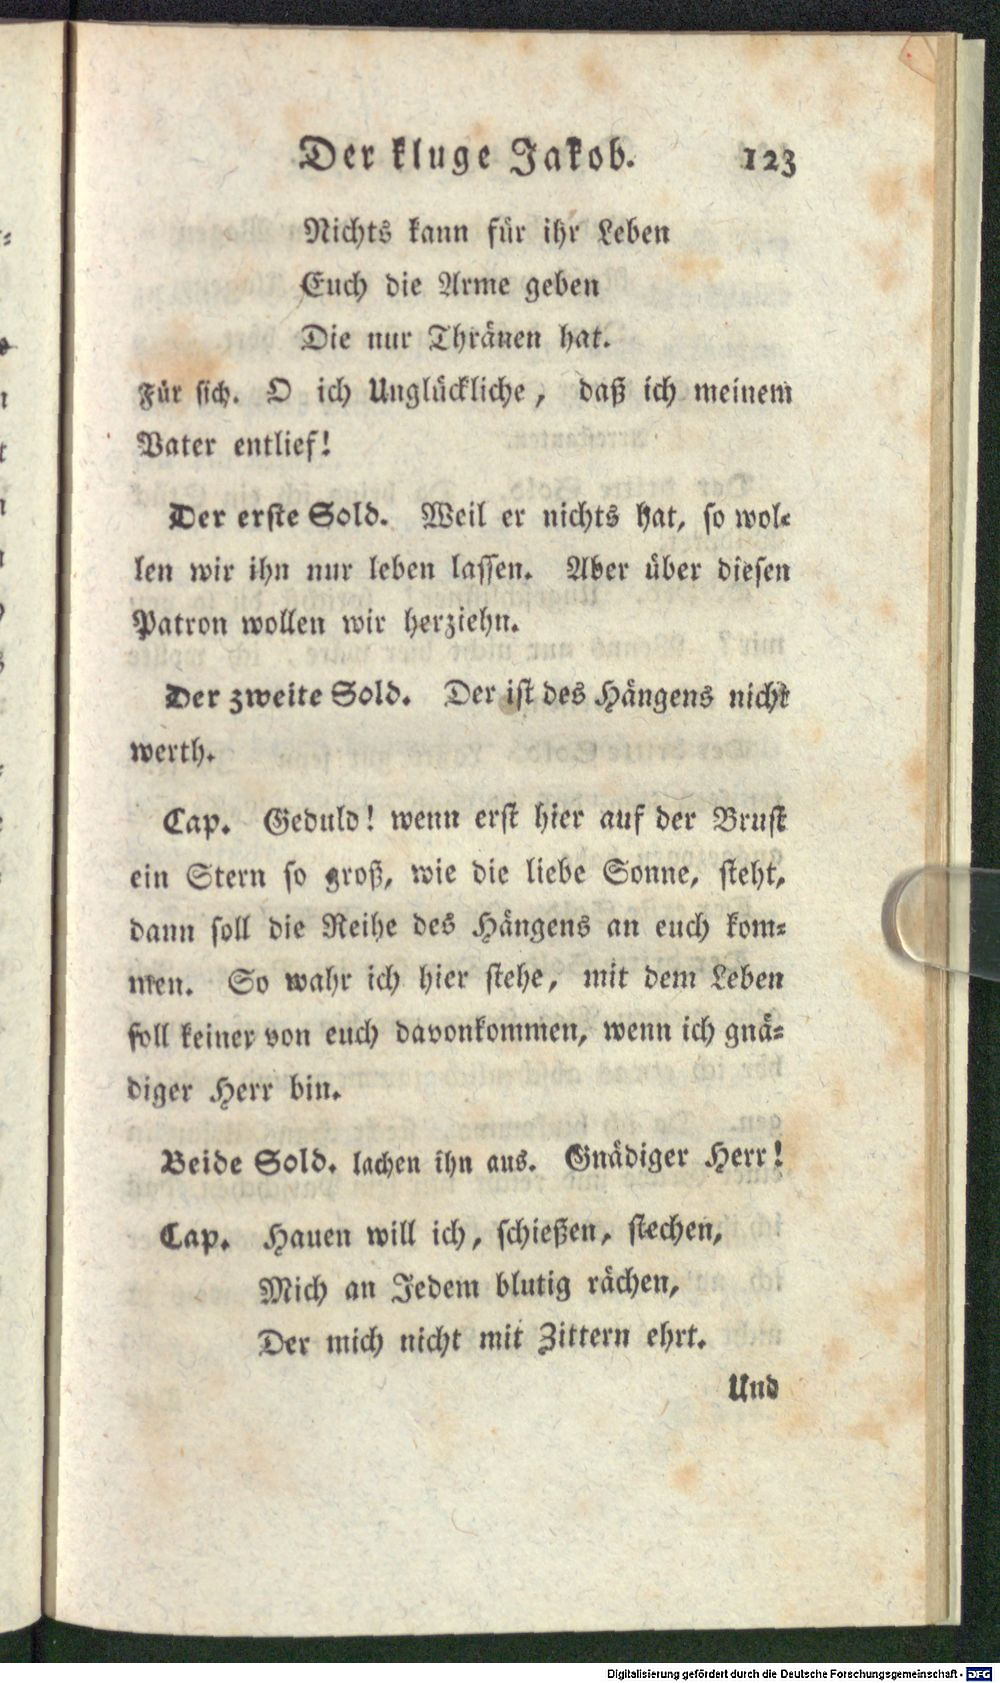 Der kluge Jakob. 123
Nichts kann für ihr Leben
Euch die Arme geben
Die nur Thränen hat.
Für sich. O ich Unglückliche, daß ich meinem
Vater entlief!
Der erste Sold. Weil er nichts hat, so wol-
len wir ihn nur leben lassen. Aber über diesen
Patron wollen wir herziehn.
Der zweite Sold. Der ist des Hängens nicht
werth.
Cap. Geduld! wenn erst hier auf der Brust
ein Stern so groß, wie die liebe Sonne, steht,
dann soll die Reihe des Hängens an euch kom-
men. So wahr ich hier stehe, mit dem Leben
soll keiner von euch davonkommen, wenn ich gnä-
diger Herr bin.
Beide Sold. lachen ihn aus. Gnädiger Herr!
Cap. Hauen will ich, schießen, stechen,
Mich an Jedem blutig rächen,
Der mich nicht mit Zittern ehrt.
Und
Digitalisierung gefördert durch die Deutsche Forschungsgemeinschaft - DFG